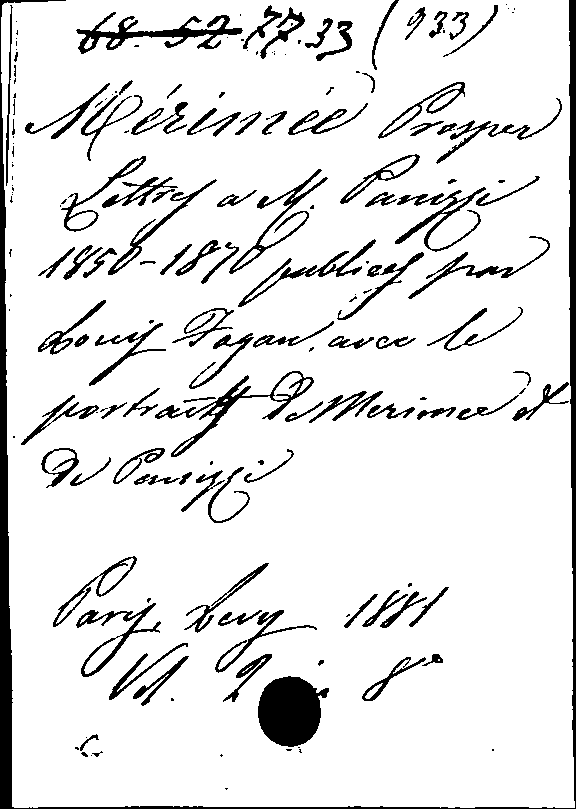 68. 52 77.33 (933)
Mérimée Prosper
Lettres a M. Panizzi
1850-1870 publiees par
Louis Fagan. avec le
portraits de Merimee et
de Panizzi
Paris, Levy 1881
Vol. 2 in 8°